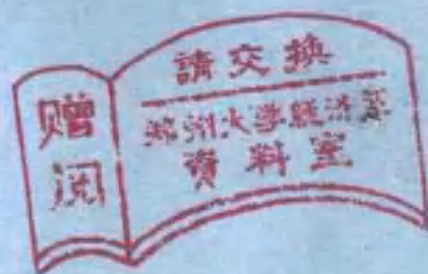 赠
阅
請交换
郑州大学经济系
資料室